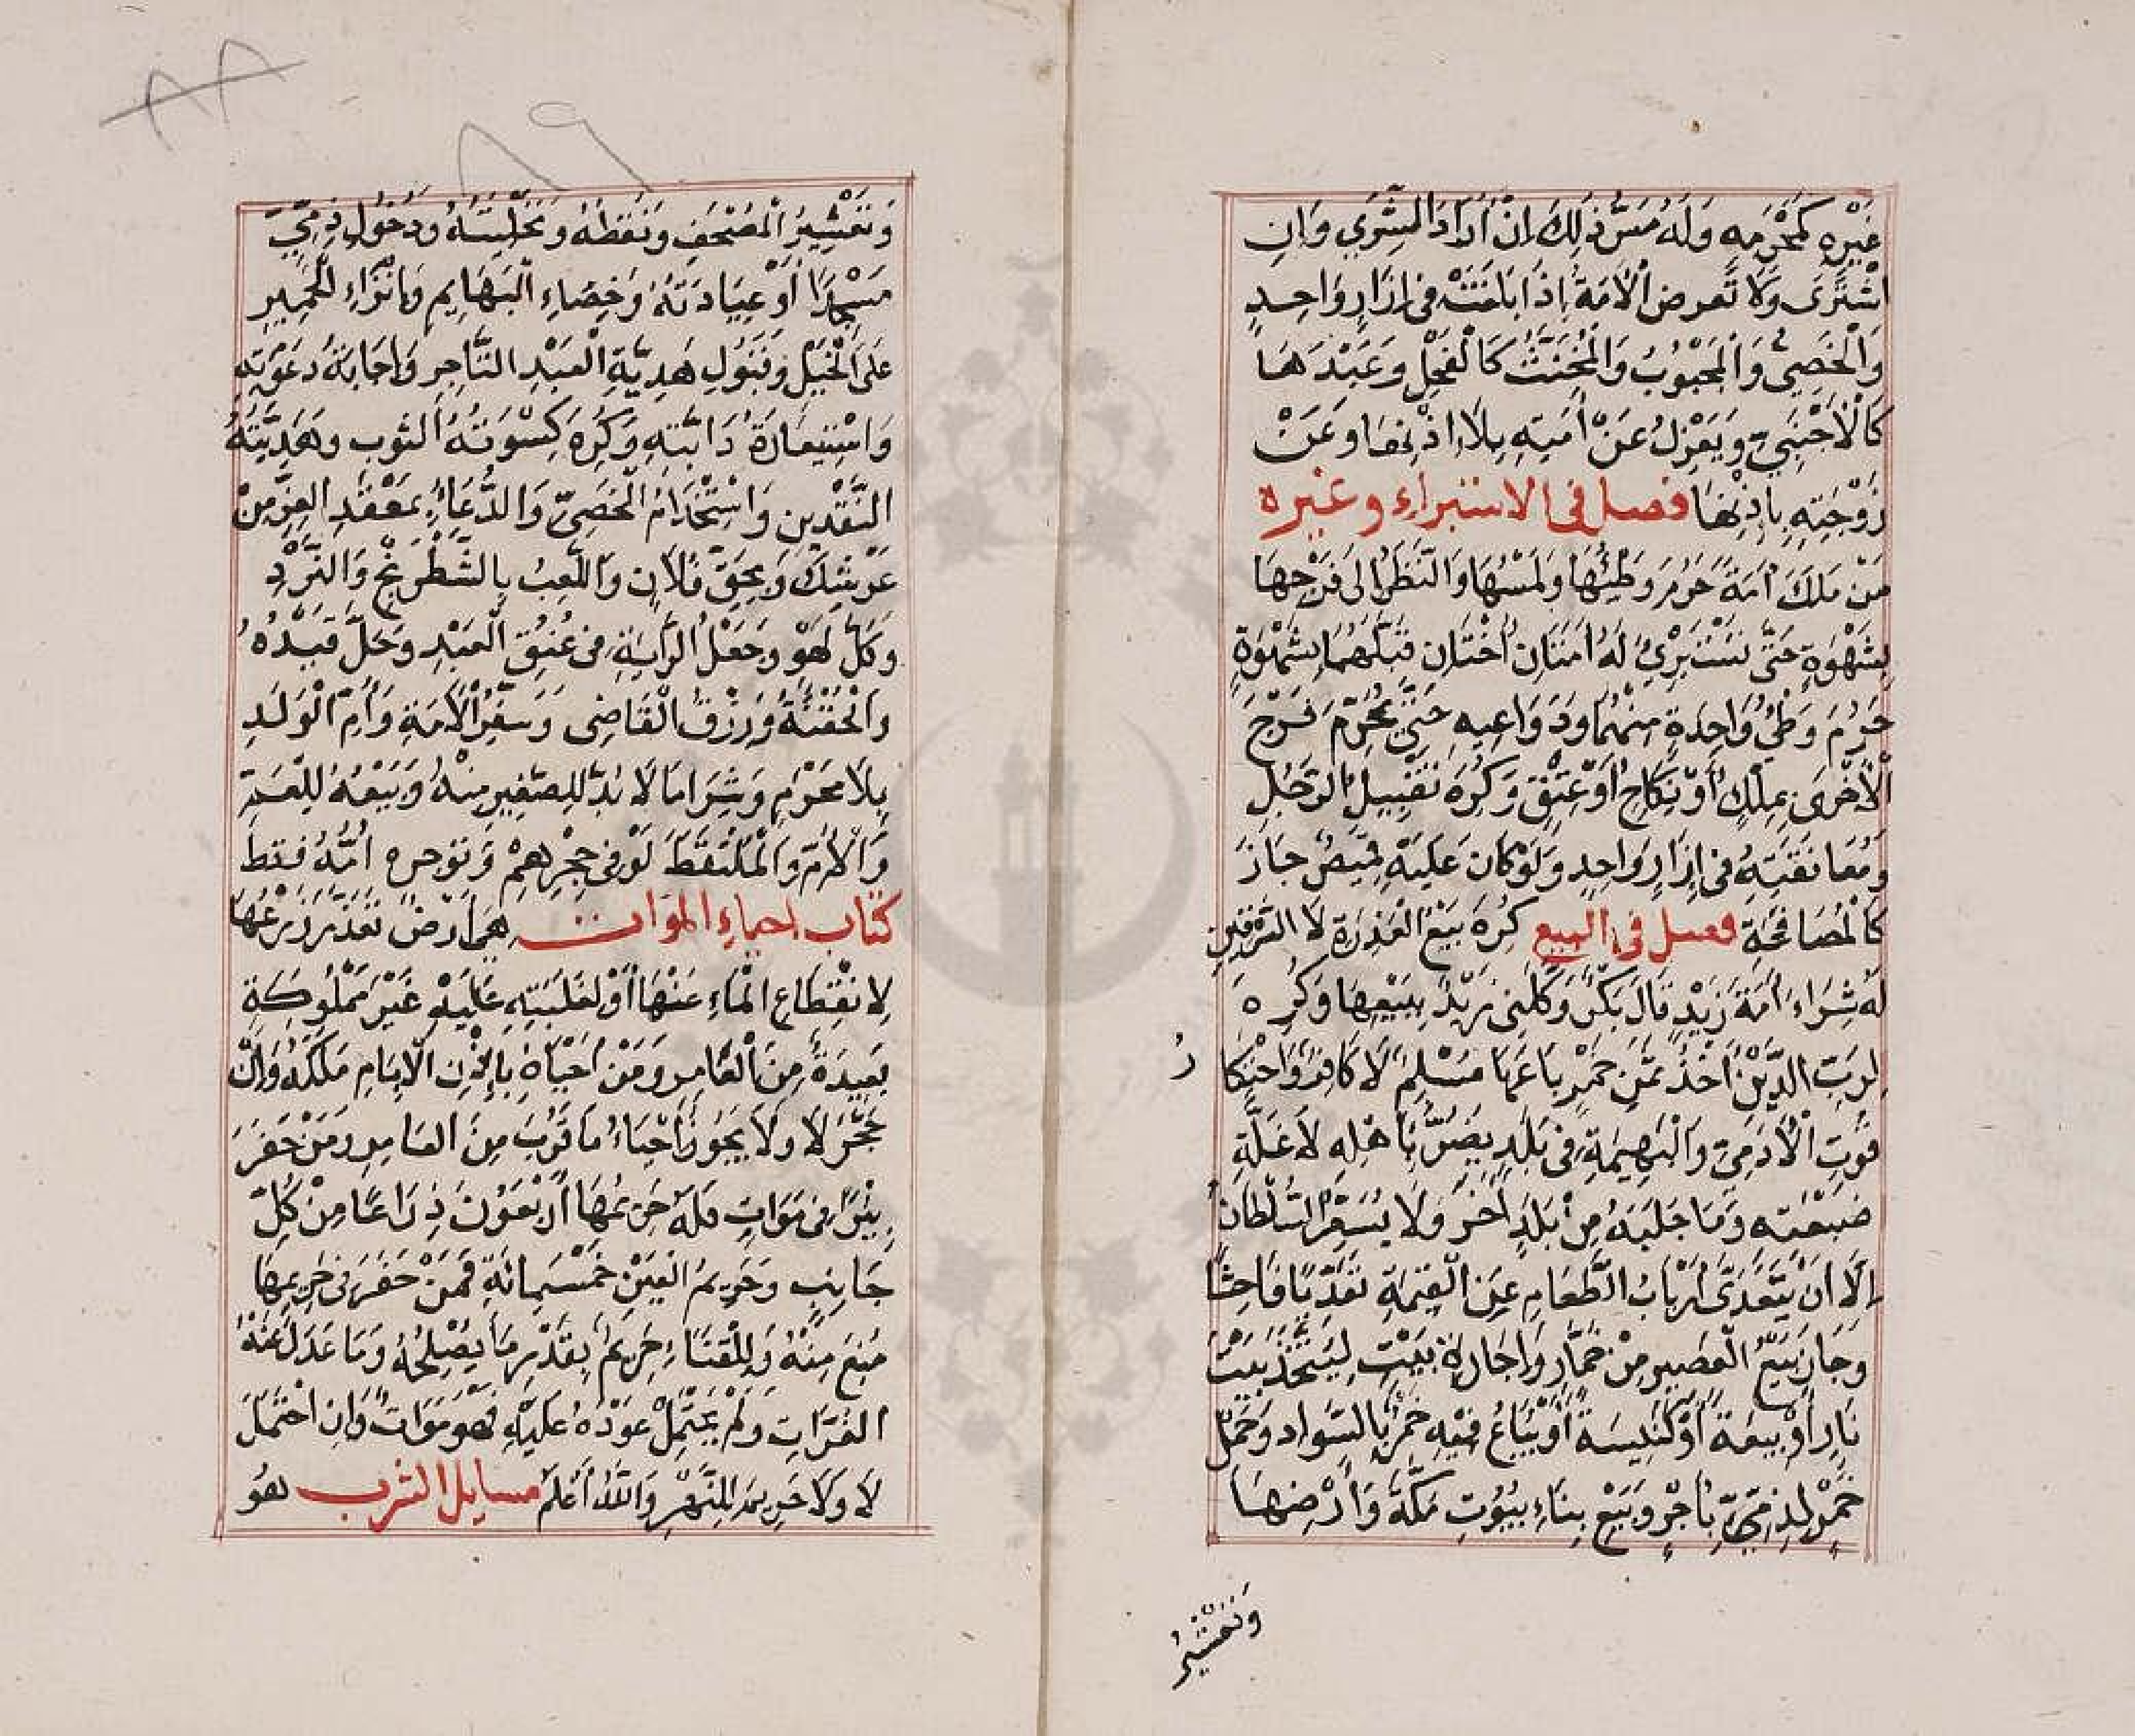 غَيْرِهِ كَمَحْرَمِهِ وَلَهُ مَسُّ ذٰلِكَ اِنْ اَرَادَ الشِّرَي وَاِنِ
اشْتَرَى وَلَا تُعرض الْاَمَةُ اِذَا بَلَغَتْ فِى اِزَارٍ وَاحِدٍ
وَالْخَصِىُّ وَالْمَجْبُوبُ وَالْمُخَنَّثُ كَالْفَحْلِ وَعَبْدُهَا
كَالْاَجْنَبِيِّ وَيَعْزِلُ عَنْ اَمَتِهِ بِلَا اِذْنِهَا وَعَنْ
زَوْجَتِهِ بِاِذْنِهَا فصل فى الاستبراء وغيره
مَنْ مَلَكَ اَمَةً حَرُمَ وَطْئُهَا وَلَمْسُهَا وَالنَّظَرُ اِلى فَرْجِهَا
بِشَهْوَةٍ حَتَّى تَسْتَبْرِئَ لَهُ اَمَتَانِ اُخْتَانِ قَبَّلَهُمَا بِشَهْوَةٍ
حَرُمَ وَطْئُ وَاحِدَةٍ مِنْهُمَا وَدَوَاعِيهِ حَتَّى يُحَرِّمَ فَرْجَ
الْاُخْرَى بِمِلْكٍ اَوْ نِكَاحٍ اَوْ عِتْقٍ وَكُرِهَ تَقْبِيلُ الرَّجُلِ
وَمُعَانَقَتِهُ فِى اِزَارٍ وَاحِدٍ وَلَوْ كَانَ عَلَيْهِ قَمِيصٌ جَازَ
كَالْمُصَافَحَةِ فصل فى البيع كُرِهَ بَيْعُ الْعَذِرَةِ لَا السِّرْقِينِ
لَهُ شِرَاءُ اَمَةَ زَيْدٍ قَالَ بَكْرٌ وَكَّلَنِى زَيْدٌ بِبَيْعِهَا وَكُرِهَ
لِرَبِّ الدَّيْنِ اَخْذُ ثَمَنِ خَمْرٍ بَاعَهَا مُسْلِمٌ لَا كَافِرٌ وَاحْتِكَا
رُ
قُوتِ الْاٰدَمِىِّ وَالْبَهِيمَةِ فِى بَلَدٍ يَضُرُّ بِاَهْلِهِ لَا غَلَّةِ
ضَيْعَتِهِ وَمَا جَلَبَهُ مِنْ بَلَدٍ اٰخَرَ وَلَا يُسَعِّرُ السُّلْطَانُ
اِلَّا اَنْ يَتَعَدَّى اَرْبَابُ الطَّعَامِ عَنِ الْقِيمَةِ تَعَدِّيًا فَاحِشًا
وَجَازَ بَيْعُ الْعَصِيرِ مِنْ خَمَّارٍ وَاِجَارَةُ بَيْتٍ لِيُتَّخَذَ بَيْتَ
نَارٍ اَوْ بِيعَةً اَوْ كَنِيسَةً اَوْ يُبَاعُ فِيْهِ خَمْرٌ بِالسَّوَادِ وَحَمْلُ
خَمْرٍ لِذِمِّيٍّ بِاَجْرٍ وَبَيْعُ بِنَاءِ بُيُوتِ مَكَّةَ وَاَرْضِهَا
وَتَعْشِيرُ
٨٨
٨٩
وَتَعْشِيرُ الْمُصْحَفِ وَنَقْطُهُ وَتَحْلِيَتُهُ وَدُخُولُ ذِمِّيٍّ
مَسْجِدًا اَوْ عِيَادَتُهُ وَخِصَاءِ الْبَهَايِمِ وَاِنْزَاءِ الْحَمِيرِ
عَلَى الْخَيْلِ وَقَبُولِ هَدِيَّةِ الْعَبْدِ التَّاجِرِ وَاِجَابَةُ دَعْوَتِهِ
وَاسْتِعَارَةُ دَابَّتِهِ وَكُرِهَ كِسْوَتُهُ الثوب وَهَدِيَّتُهُ
النَّقْدَينِ وَاسْتِخْدَامُ الْخَصِىِّ وَالدُّعَاءُ بِمَعْقَدِ الْعِزِّ مِنْ
عَرْشِكَ وَبِحَقِّ فُلَانٍ وَاللَّعِبُ بِالشَّطْرَنْجِ وَالنَّرْدِ
وَكُلِّ لَهْوٍ وَجَعْلُ الرَّايَةِ فِى عُنُقِ الْعَبْدِ وَحَلَّ قَيْدُهُ
وَالْحُقْنَةُ وَرِزْقُ الْقَاضِى وَسَفَرُ الْاَمَةِ وَاُمِّ الْوَلَدِ
بِلَا مَحْرَمٍ وَشِرَا مَا لَا بُدَّ لِلصَّغِيرِ مِنْهُ وَبَيْعُهُ لِلْعَمِّ
وَالْاُمِّ وَالْمُلْتَقِطَ لَوْ فِى حِجْرِهِمْ وَتؤجره اُمُّهُ فقط
كتاب احياء الموات هِىَ اَرْضٌ تَعَذَّرَ زَرْعُهَا
لِانْقِطَاعِ الْمَاءِ عَنْهَا اَوْ لِغَلَبَتِهِ عَلَيْهِ غَيْرَ مَمْلُوكَةٍ
بَعِيدَةً مِنَ الْعَامِرِ وَمَنْ اَحْيَاهُ بِاِذْنِ الْاِمَامِ مَلَكَهُ وَاِنْ
حَجَّرَ لَا وَلَا يَجُوزُ اِحْيَاءُ مَا قَرُبَ مِنَ الْعَامِرِ وَمَنْ حَفَرَ
بِئْرًا فِى مَوَاتٍ فَلَهُ حَرِيمُهَا اَرْبَعُونَ ذِرَاعًا مِنْ كُلِّ
جَانِبٍ وَحَرِيمُ الْعَيْنِ خَمْسُمِائَةٍ فَمَنْ حَفَرَ فِى حَرِيمِهَا
مُنِعَ مِنْهُ وَلِلْقَنَاءِ حَرِيمٌ بِقَدْرِ مَا يُصْلِحُهُ وَمَا عَدَلَ عَنْهُ
الْفُرَاتِ وَلَمْ يَحْتَمِلْ عَوْدُهُ عَلَيْهِ فَهُوَ مَوَاتٌ وَاِنِ احْتَمَلَ
لَا وَلَا حَرِيمَ لِلنَّهْرِ وَاللّٰهُ اَعْلَمُ مسايل الشرب هُوَ